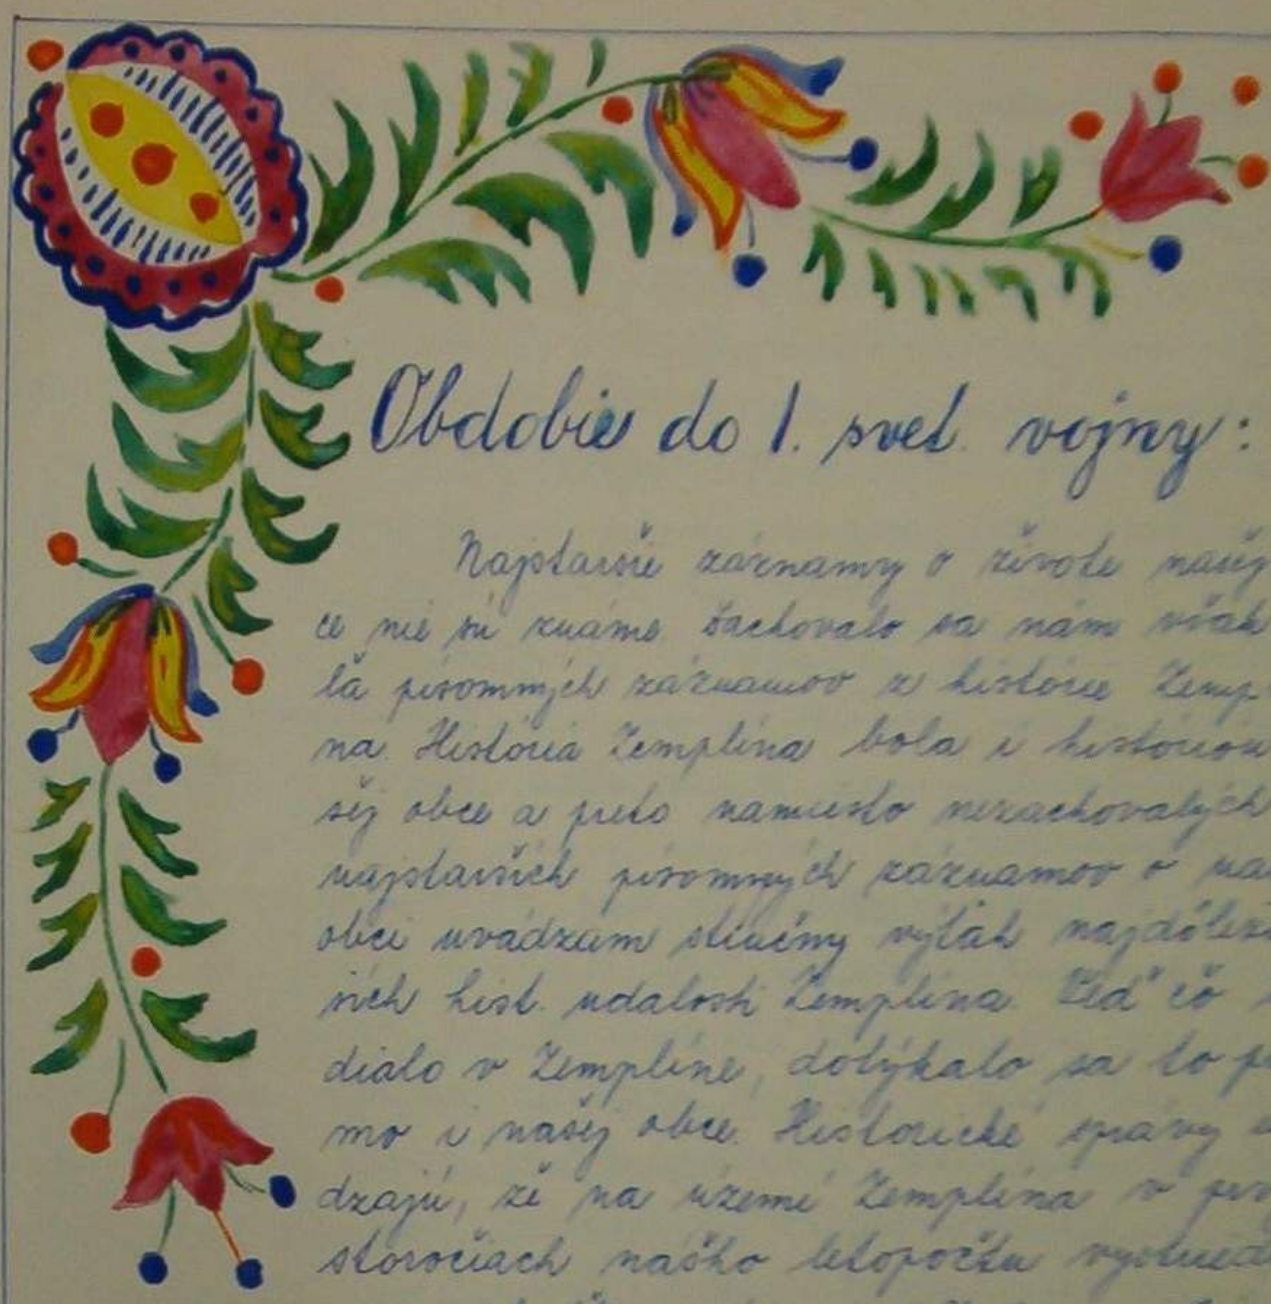 Obdobie do 1. svet. vojny:
Najstaršie záznamy o živote našej
ce nie sú známe. Zachovalo sa nám však
ľa písomných záznamov z histórie Zemp
na. História Zemplína bola i históriou
šej obce a preto namiesto nezachovalých
najstarších písomných záznamov o na
obci uvádzam stručný výťah najdôleži
ších hist. udalostí Zemplína. Veď čo
dialo v Zemplíne, dotýkalo sa to pr
mo i našej obce. Historické správy u
dzajú, že na území Zemplína v prv
storočiach nášho letopočtu vystried